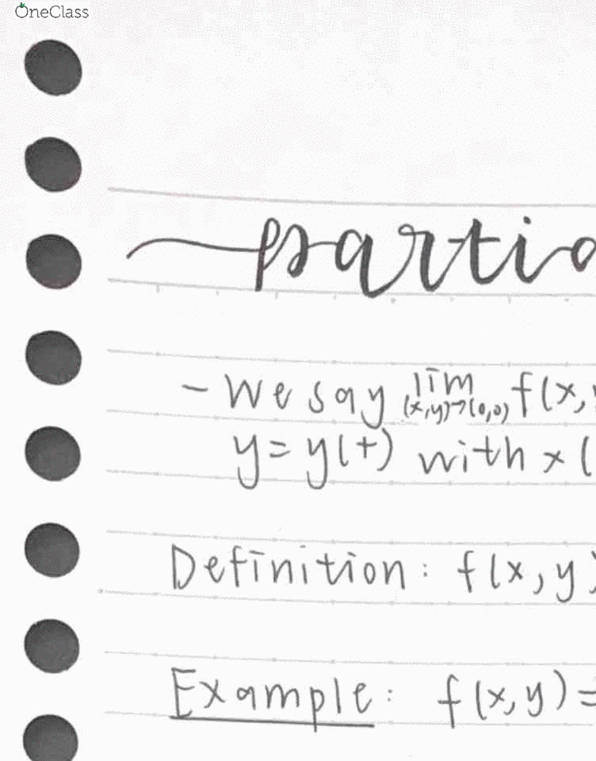 OneClass
partia
- We say lim f(x,y
(x,y)→(0,0)
y = y(t) with x(
Definition: f(x,y)
Example: f(x,y) =